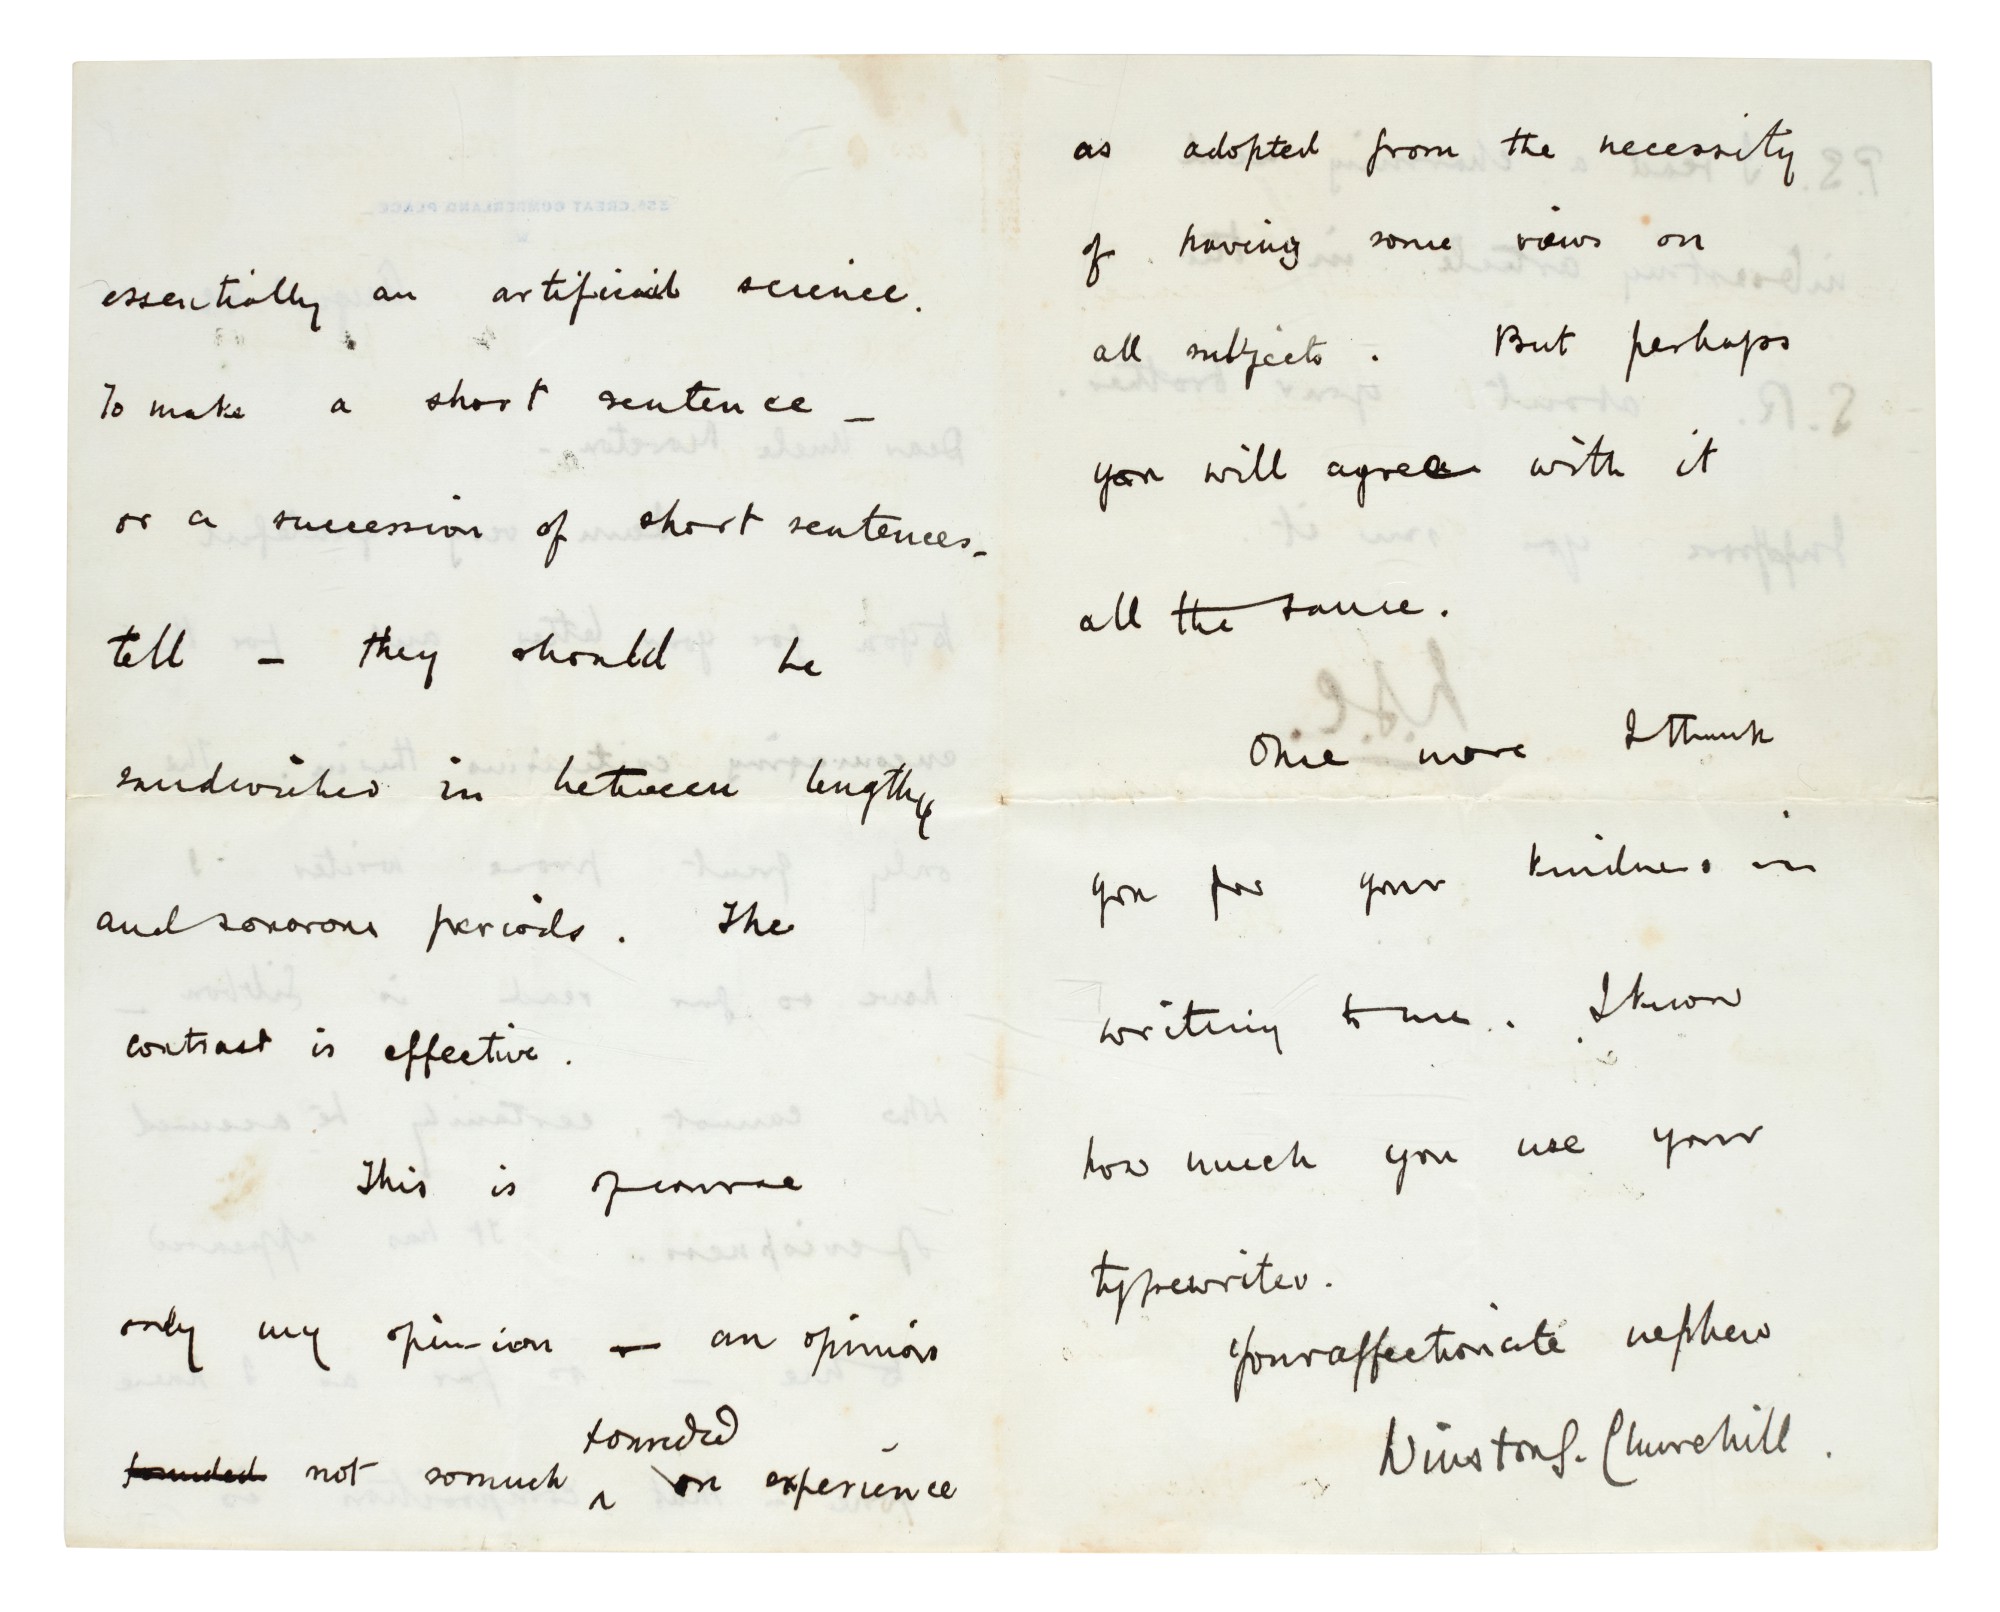 essentially an artificial science.
To make a short sentence —
or a succession of short sentences —
tell — they should be
sandwiched in between lengthy
and sonorous periods. The
contrast is effective.
This is of course
only my opinion — an opinion
founded
founded not so much on experience
as adopted from the necessity
of having some views on
all subjects. But perhaps
you will agree with it
all the same.
Once more I thank
you for your kindness in
writing to me. I know
how much you use your
typewriter.
Your affectionate nephew
Winston S. Churchill.